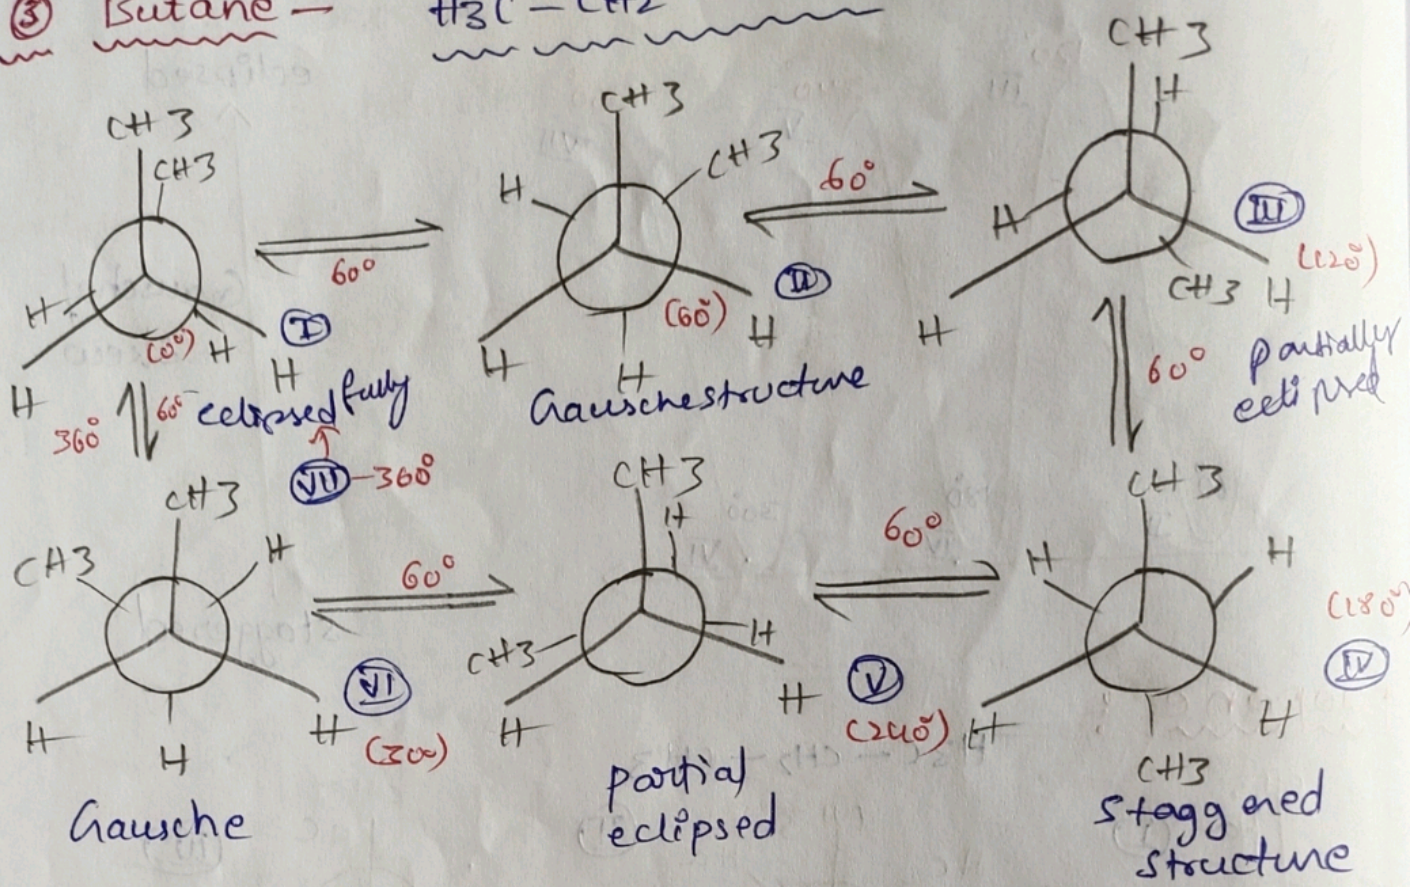 ③ Butane — H3C – CH2
CH3
CH3
H
H
H
H
(0°)
I
eclipsed fully
60°
CH3
CH3
H
H
H
H
(60°)
II
Gauschestructure
60°
CH3
H
H
H
CH3
H
III
(120°)
partially
eclipsed
360°
60°
VII – 360°
60°
CH3
CH3
H
H
H
H
VI
(300)
Gausche
60°
CH3
H
CH3
H
H
H
V
(240°)
partial
eclipsed
60°
CH3
H
H
H
H
CH3
(180°)
IV
Staggered
structure